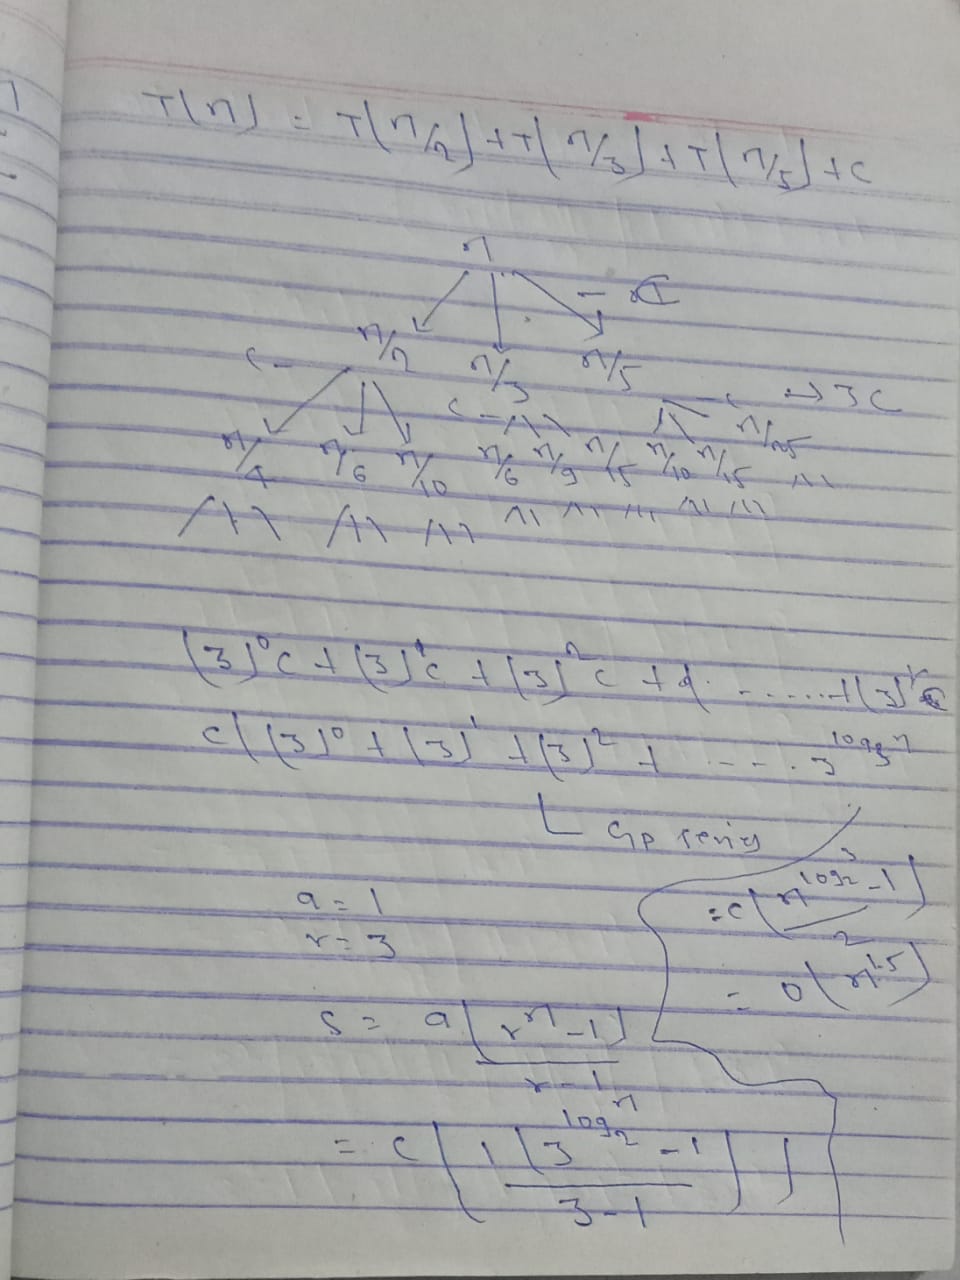 T(n) = T(n/2) + T(n/3) + T(n/5) + C
n
- C
n/2 n/3 n/5
C - C - - C → 3C
n/4 n/6 n/10 n/6 n/9 n/15 n/10 n/15 n/25
(3)⁰c + (3)¹c + (3)²c + ...... + (3)ᵏc
c((3)⁰ + (3)¹ + (3)² + ---- . 3^log₃ n
GP series
a = 1
r = 3
S = a(rⁿ - 1) / r - 1
= c(1(3^log₂ n - 1) / 3 - 1))
= c(n^log₂ 3 - 1) / 2
= O(n^1.5)